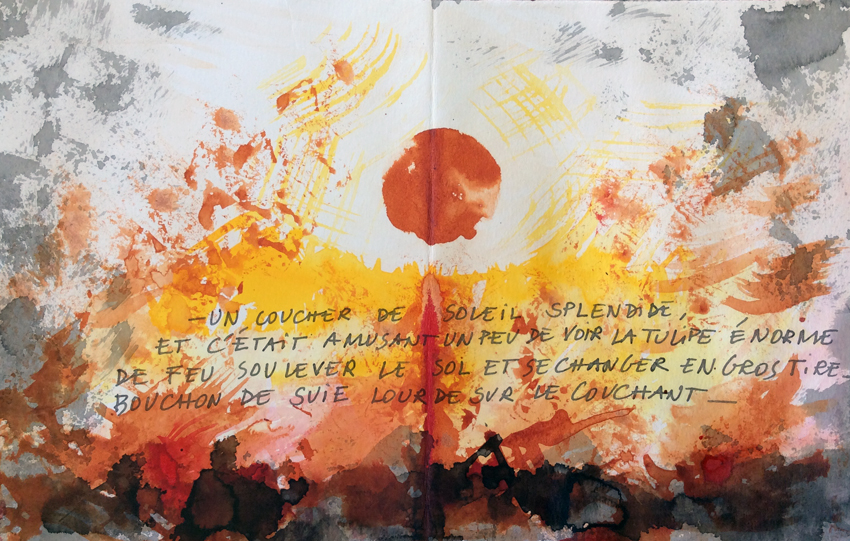 — UN COUCHER DE SOLEIL SPLENDIDE,
ET C'ÉTAIT AMUSANT UN PEU DE VOIR LA TULIPE ÉNORME
DE FEU SOULEVER LE SOL ET SE CHANGER EN GROS TIRE_
BOUCHON DE SUIE LOURDE SUR LE COUCHANT _